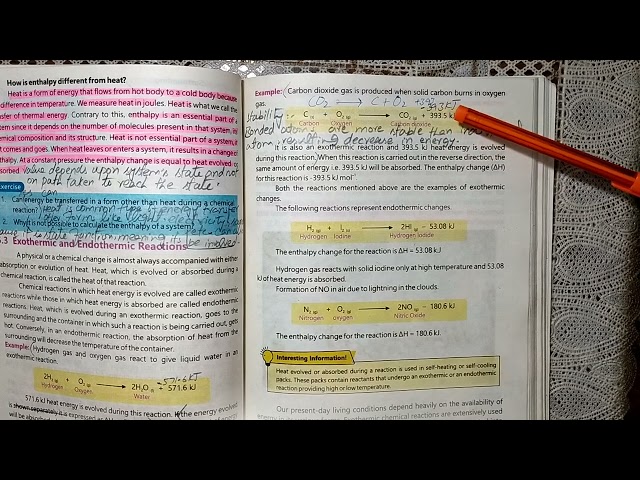 How is enthalpy different from heat?
Heat is a form of energy that flows from hot body to a cold body because
difference in temperature. We measure heat in joules. Heat is what we call the
sfer of thermal energy. Contrary to this, enthalpy is an essential part of a
em since it depends on the number of molecules present in that system, its
chemical composition and its structure. Heat is not essential part of a system, it
t comes and goes. When heat leaves or enters a system, it results in a change
thalpy. At a constant pressure the enthalpy change is equal to heat evolved or
sorbed value depends upon system's state and not
on path taken to reach the state.
xercise
Can energy be transferred in a form other than heat during a chemical
reaction?
2. Why is not possible to calculate the enthalpy of a system?
.3 Exothermic and Endothermic Reactions
A physical or a chemical change is almost always accompanied with either
absorption or evolution of heat. Heat, which is evolved or absorbed during a
chemical reaction, is called the heat of that reaction.
Chemical reactions in which heat energy is evolved are called exothermic
reactions while those in which heat energy is absorbed are called endothermic
reactions. Heat, which is evolved during an exothermic reaction, goes to the
surrounding and the container in which such a reaction is being carried out, gets
hot. Conversely, in an endothermic reaction, the absorption of heat from the
surrounding will decrease the temperature of the container.
Example: Hydrogen gas and oxygen gas react to give liquid water in an
exothermic reaction.
-571.6 kJ
2H₂ (g) + O₂ (g) → 2H₂O (l) + 571.6 kJ
Hydrogen Oxygen Water
571.6 kJ heat energy is evolved during this reaction. If the energy evolved
is shown separately it is expressed as
Example: Carbon dioxide gas is produced when solid carbon burns in oxygen
gas. CO₂ → C + O₂ +393
-393 kJ
C (s) + O₂ (g) → CO₂ (g) + 393.5 kJ
Carbon Oxygen Carbon dioxide
Stability:
Bonded atoms are more stable than
atom resulting decrease in energy.
It is also an exothermic reaction and 393.5 kJ heat energy is evolved
during this reaction. When this is carried out in the reverse direction, the
same amount of energy i.e. 393.5 kJ will be absorbed. The enthalpy change (ΔH)
for this reaction is -393.5 kJ mol⁻¹
Both the reactions mentioned above are the examples of exothermic
changes.
The following reactions represent endothermic changes.
H₂ (g) + I₂ (s) → 2HI (g) − 53.08 kJ
Hydrogen Iodine Hydrogen iodide
The enthalpy change for the reaction is ΔH = 53.08 kJ
Hydrogen gas reacts with solid iodine only at high temperature and 53.08
kJ of heat energy is absorbed.
Formation of NO in air due to lightning in the clouds.
N₂ (g) + O₂ (g) → 2NO (g) − 180.6 kJ
Nitrogen oxygen Nitric Oxide
The enthalpy change for the reaction is ΔH = 180.6 kJ.
Interesting Information!
Heat evolved or absorbed during a reaction is used in self-heating or self-cooling
packs. These packs contain reactants that undergo an exothermic or an endothermic
reaction providing high or low temperature.
Our present-day living conditions depend heavily on the availability of
Exothermic chemical reactions are extensively used